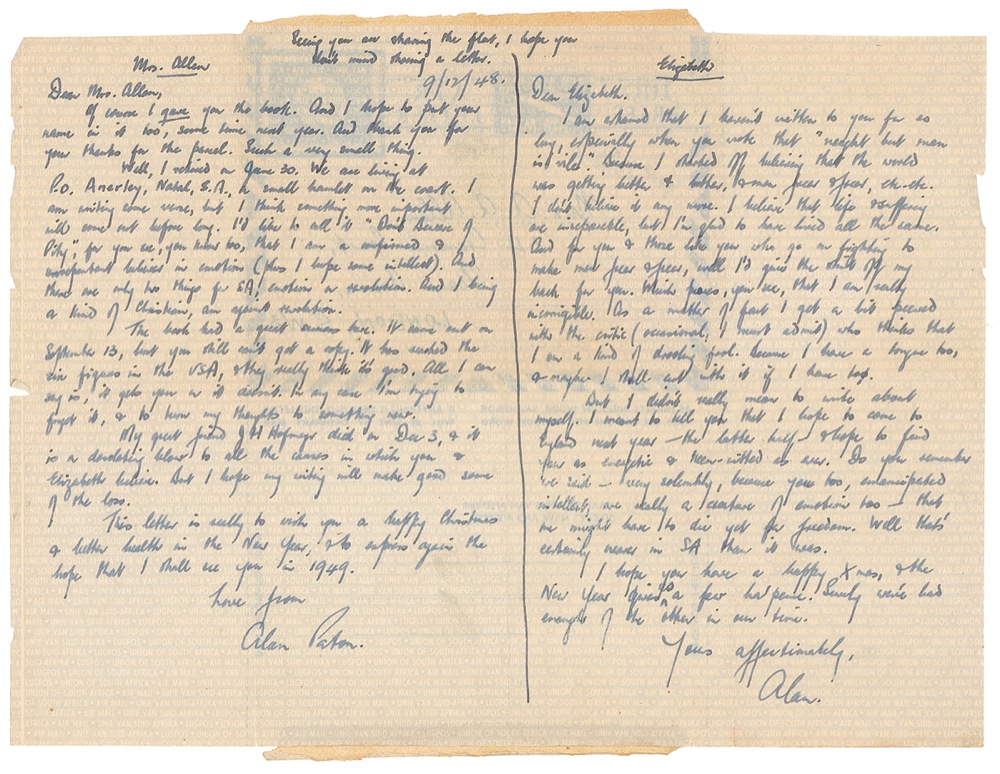 Seeing you are sharing the flat, I hope you
don't mind sharing a letter.
Mrs. Allen
9/12/48.
Dear Mrs. Allen,
Of course I gave you the book. And I hope to put your
name in it too, some time next year. And thank you for
your thanks for the panel. Such a very small thing.
Well, I retired on June 30. We are living at
P.O. Anerley, Natal, S.A., a small hamlet on the coast. I
am writing some verse, but I think something more important
will come out before long. I'd like to call it "Don't Beware of
Pity", for you see, you know too, that I am a confirmed &
unrepentant believer in emotion (plus I hope some intellect). And
there are only two things for SA, emotion or revolution. And I being
a kind of Christian, am against revolution.
The book had a great success here. It came out on
September 13, but you still can't get a copy. It has reached the
six figures in the USA, & they really think it's good. All I can
say is, it gets you or it doesn't. In any case I'm trying to
forget it, & to turn my thoughts to something new.
My great friend J H Hofmeyr died on Dec 3, & it
is a devastating blow to all the causes in which you &
Elizabeth believe. But I hope my writing will make good some
of the loss.
This letter is really to wish you a happy Christmas
& better health in the New Year, & to express again the
hope that I shall see you in 1949.
Love from
Alan Paton.
Elizabeth
Dear Elizabeth.
I am ashamed that I haven't written to you for so
long, especially when you wrote that "naught but man
is vile". Because I started off believing that the world
was getting better & better, & man freer & freer, etc. etc.
I don't believe it any more. I believe that life & suffering
are inseparable, but I'm glad to have lived all the same.
And for you & those like you who go on fighting to
make men freer & freer, well I'd give the shirt off my
back for you. Which proves, you see, that I am really
incorrigible. As a matter of fact I get a bit peeved
with the critic (occasional, I must admit) who thinks that
I am a kind of drooling fool. Because I have a tongue too,
& maybe I shall out with it if I have to.
But I didn't really mean to write about
myself. I meant to tell you that I hope to come to
England next year — the latter half — & hope to find
you as energetic & keen-witted as ever. Do you remember
we said — very solemnly, because you too, emancipated
intellect, are really a creature of emotion too — that
we might have to die yet for freedom. Well that's
certainly nearer in SA than it was.
I hope you have a happy Xmas, & the
New Year gives us a few ha'pence. Surely we've had
enough of the other in our time.
Yours affectionately,
Alan.